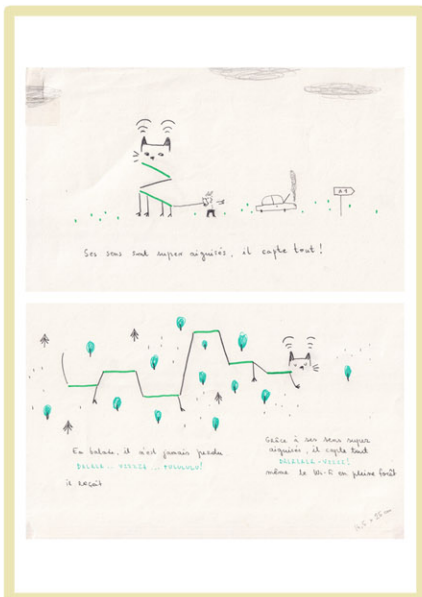 A1
Ses sens sont super aiguisés, il capte tout !
En balade, il n'est jamais perdu
il reçoit
Grâce à ses sens super
aiguisés, il capte tout
même le Wi-Fi en pleine forêt